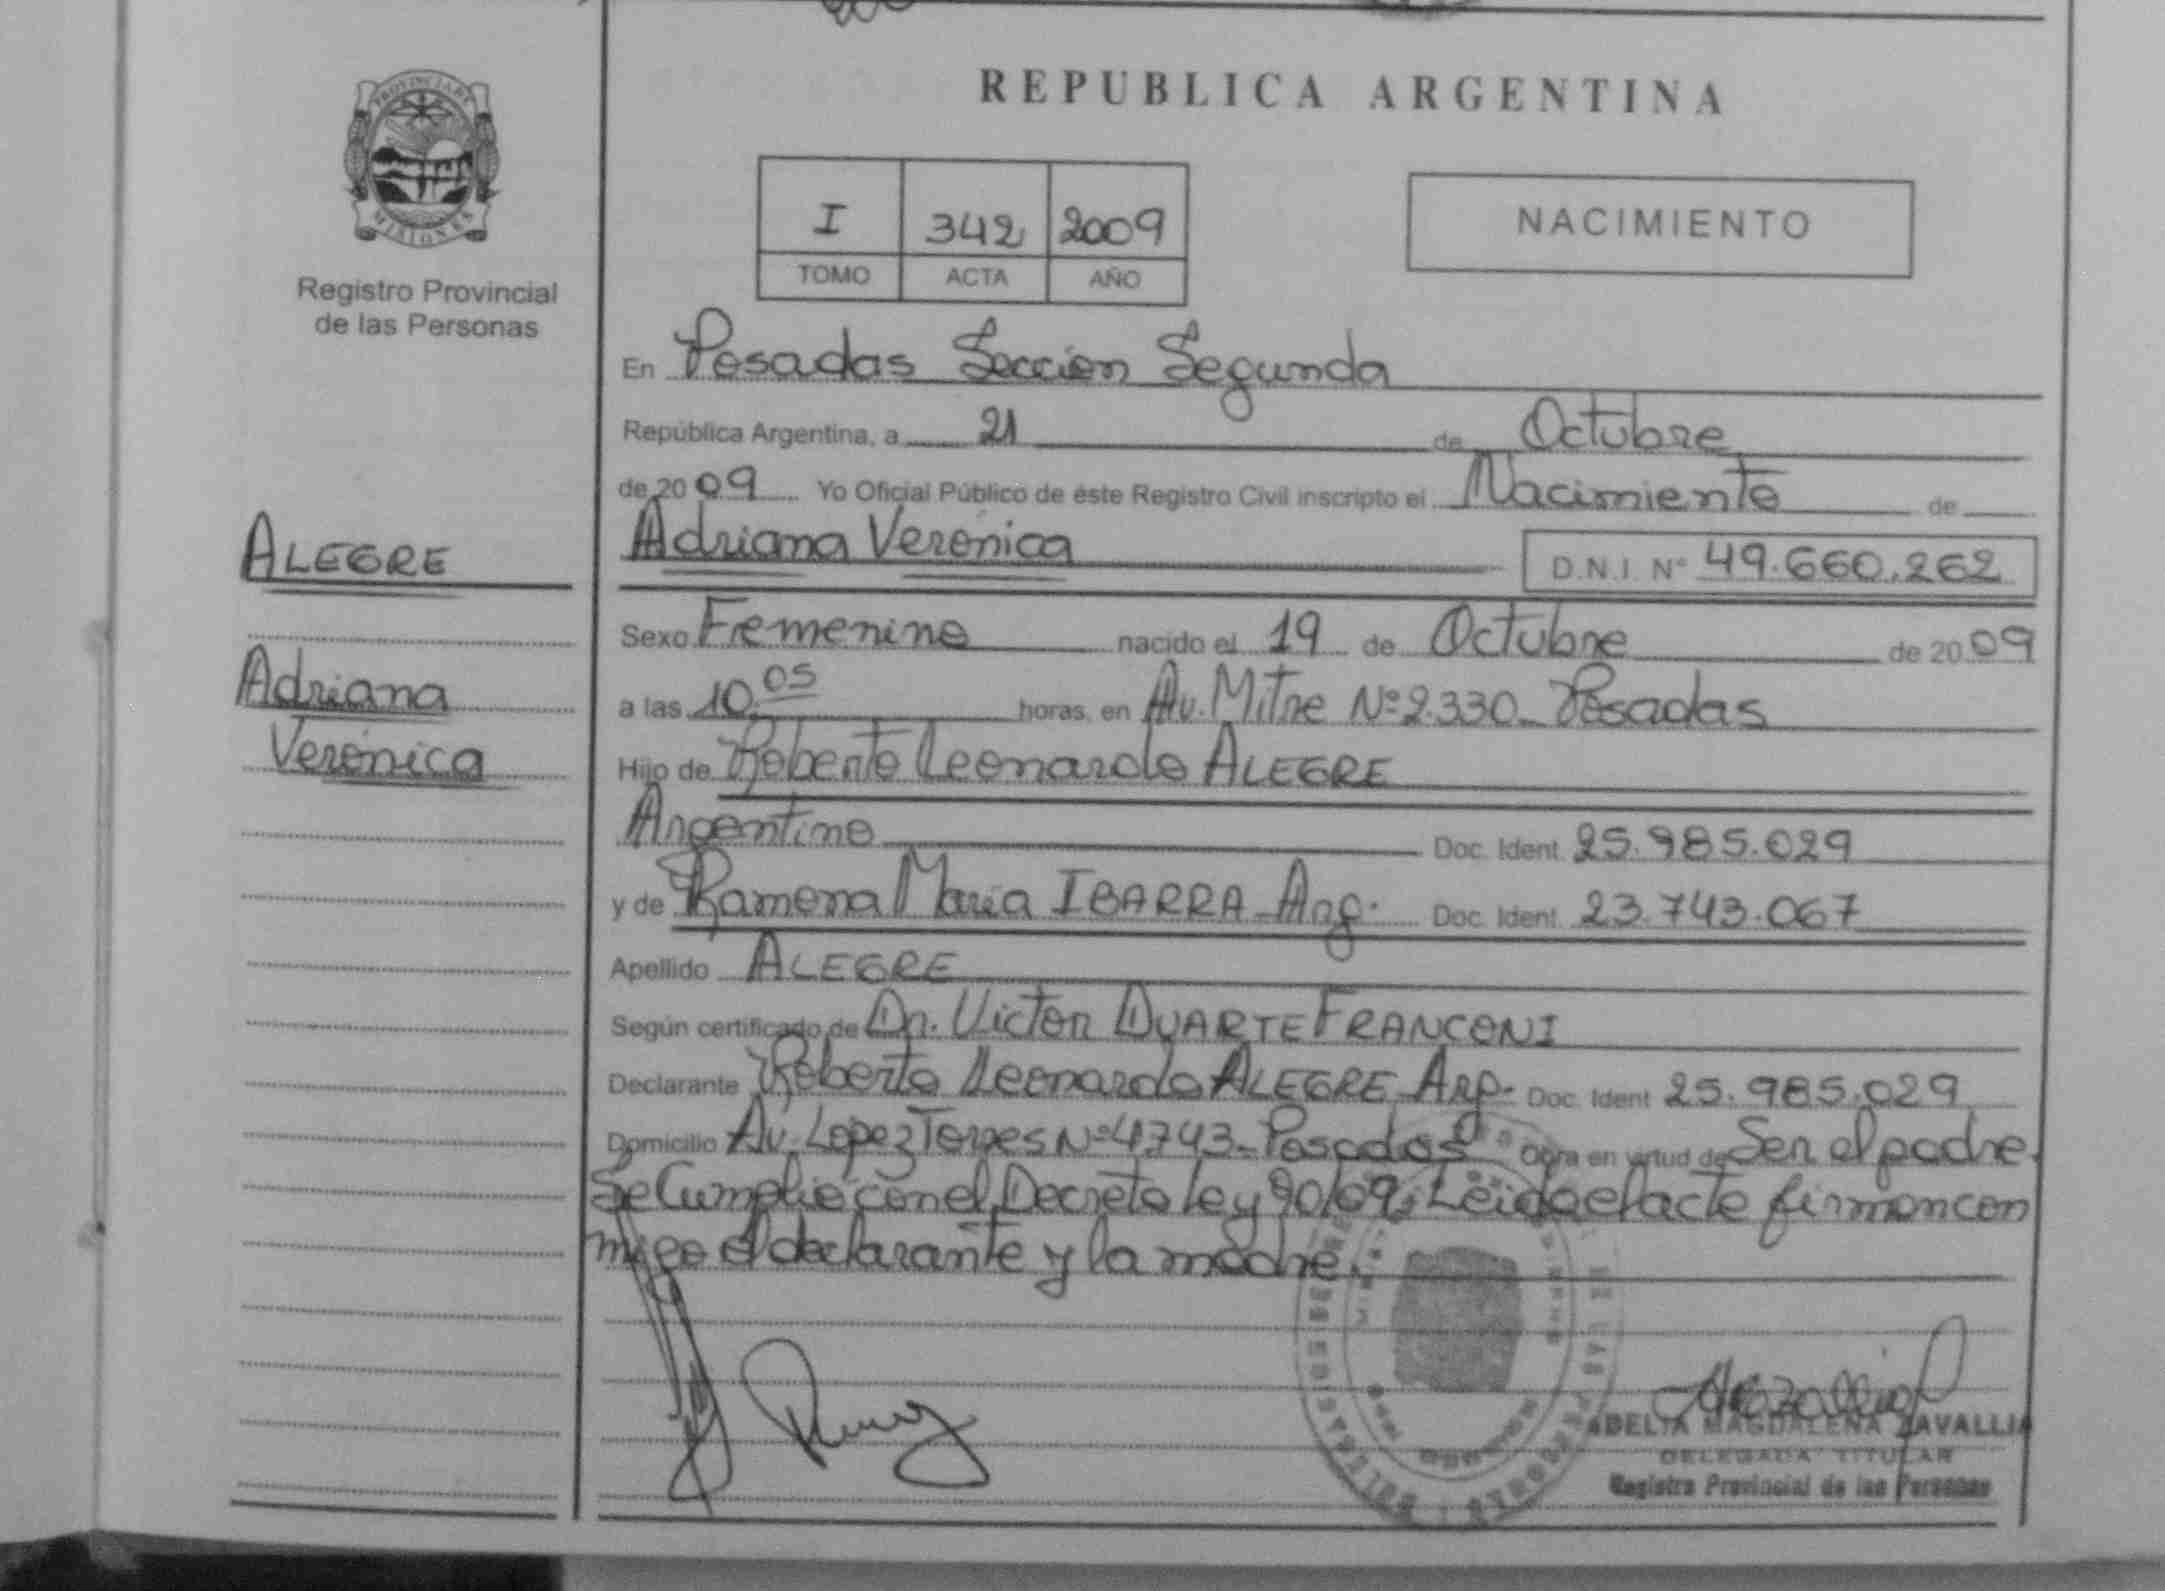 PROVINCIA DE
MISIONES
Registro Provincial
de las Personas
ALEGRE
Adriana
Verónica
REPUBLICA ARGENTINA
I 342 2009
TOMO ACTA AÑO
NACIMIENTO
En Posadas Sección Segunda
República Argentina, a 21 de Octubre
de 2009 Yo Oficial Público de éste Registro Civil inscripto el Nacimiento de
Adriana Verónica D.N.I. Nº 49.660.262
Sexo Femenino nacido el 19 de Octubre de 2009
a las 10.05 horas, en Av. Mitre Nº 2.330 - Posadas
Hijo de Roberto Leonardo ALEGRE
Argentino Doc. Ident. 25.985.029
y de Ramona María IBARRA Arg. Doc. Ident. 23.743.067
Apellido ALEGRE
Según certificado de Dr. Victor DUARTE FRANCONI
Declarante Roberto Leonardo ALEGRE Arg. Doc. Ident. 25.985.029
Domicilio Av. Lopez Torres Nº 4.743 - Posadas Obra en virtud de Ser el padre.
Se Cumplió con el Decreto Ley 90/09, Leída el acta firman con
migo el declarante y la madre.
ADELIA MAGDALENA ZAVALLIA
DELEGADA TITULAR
Registro Provincial de las Personas